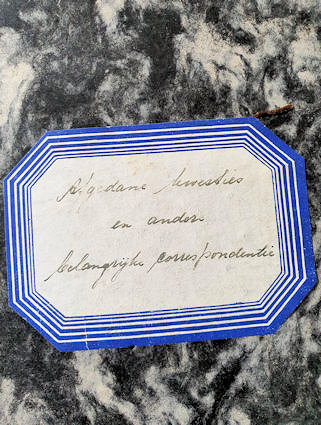 Afgedane kwesties
en andere
belangrijke correspondentie